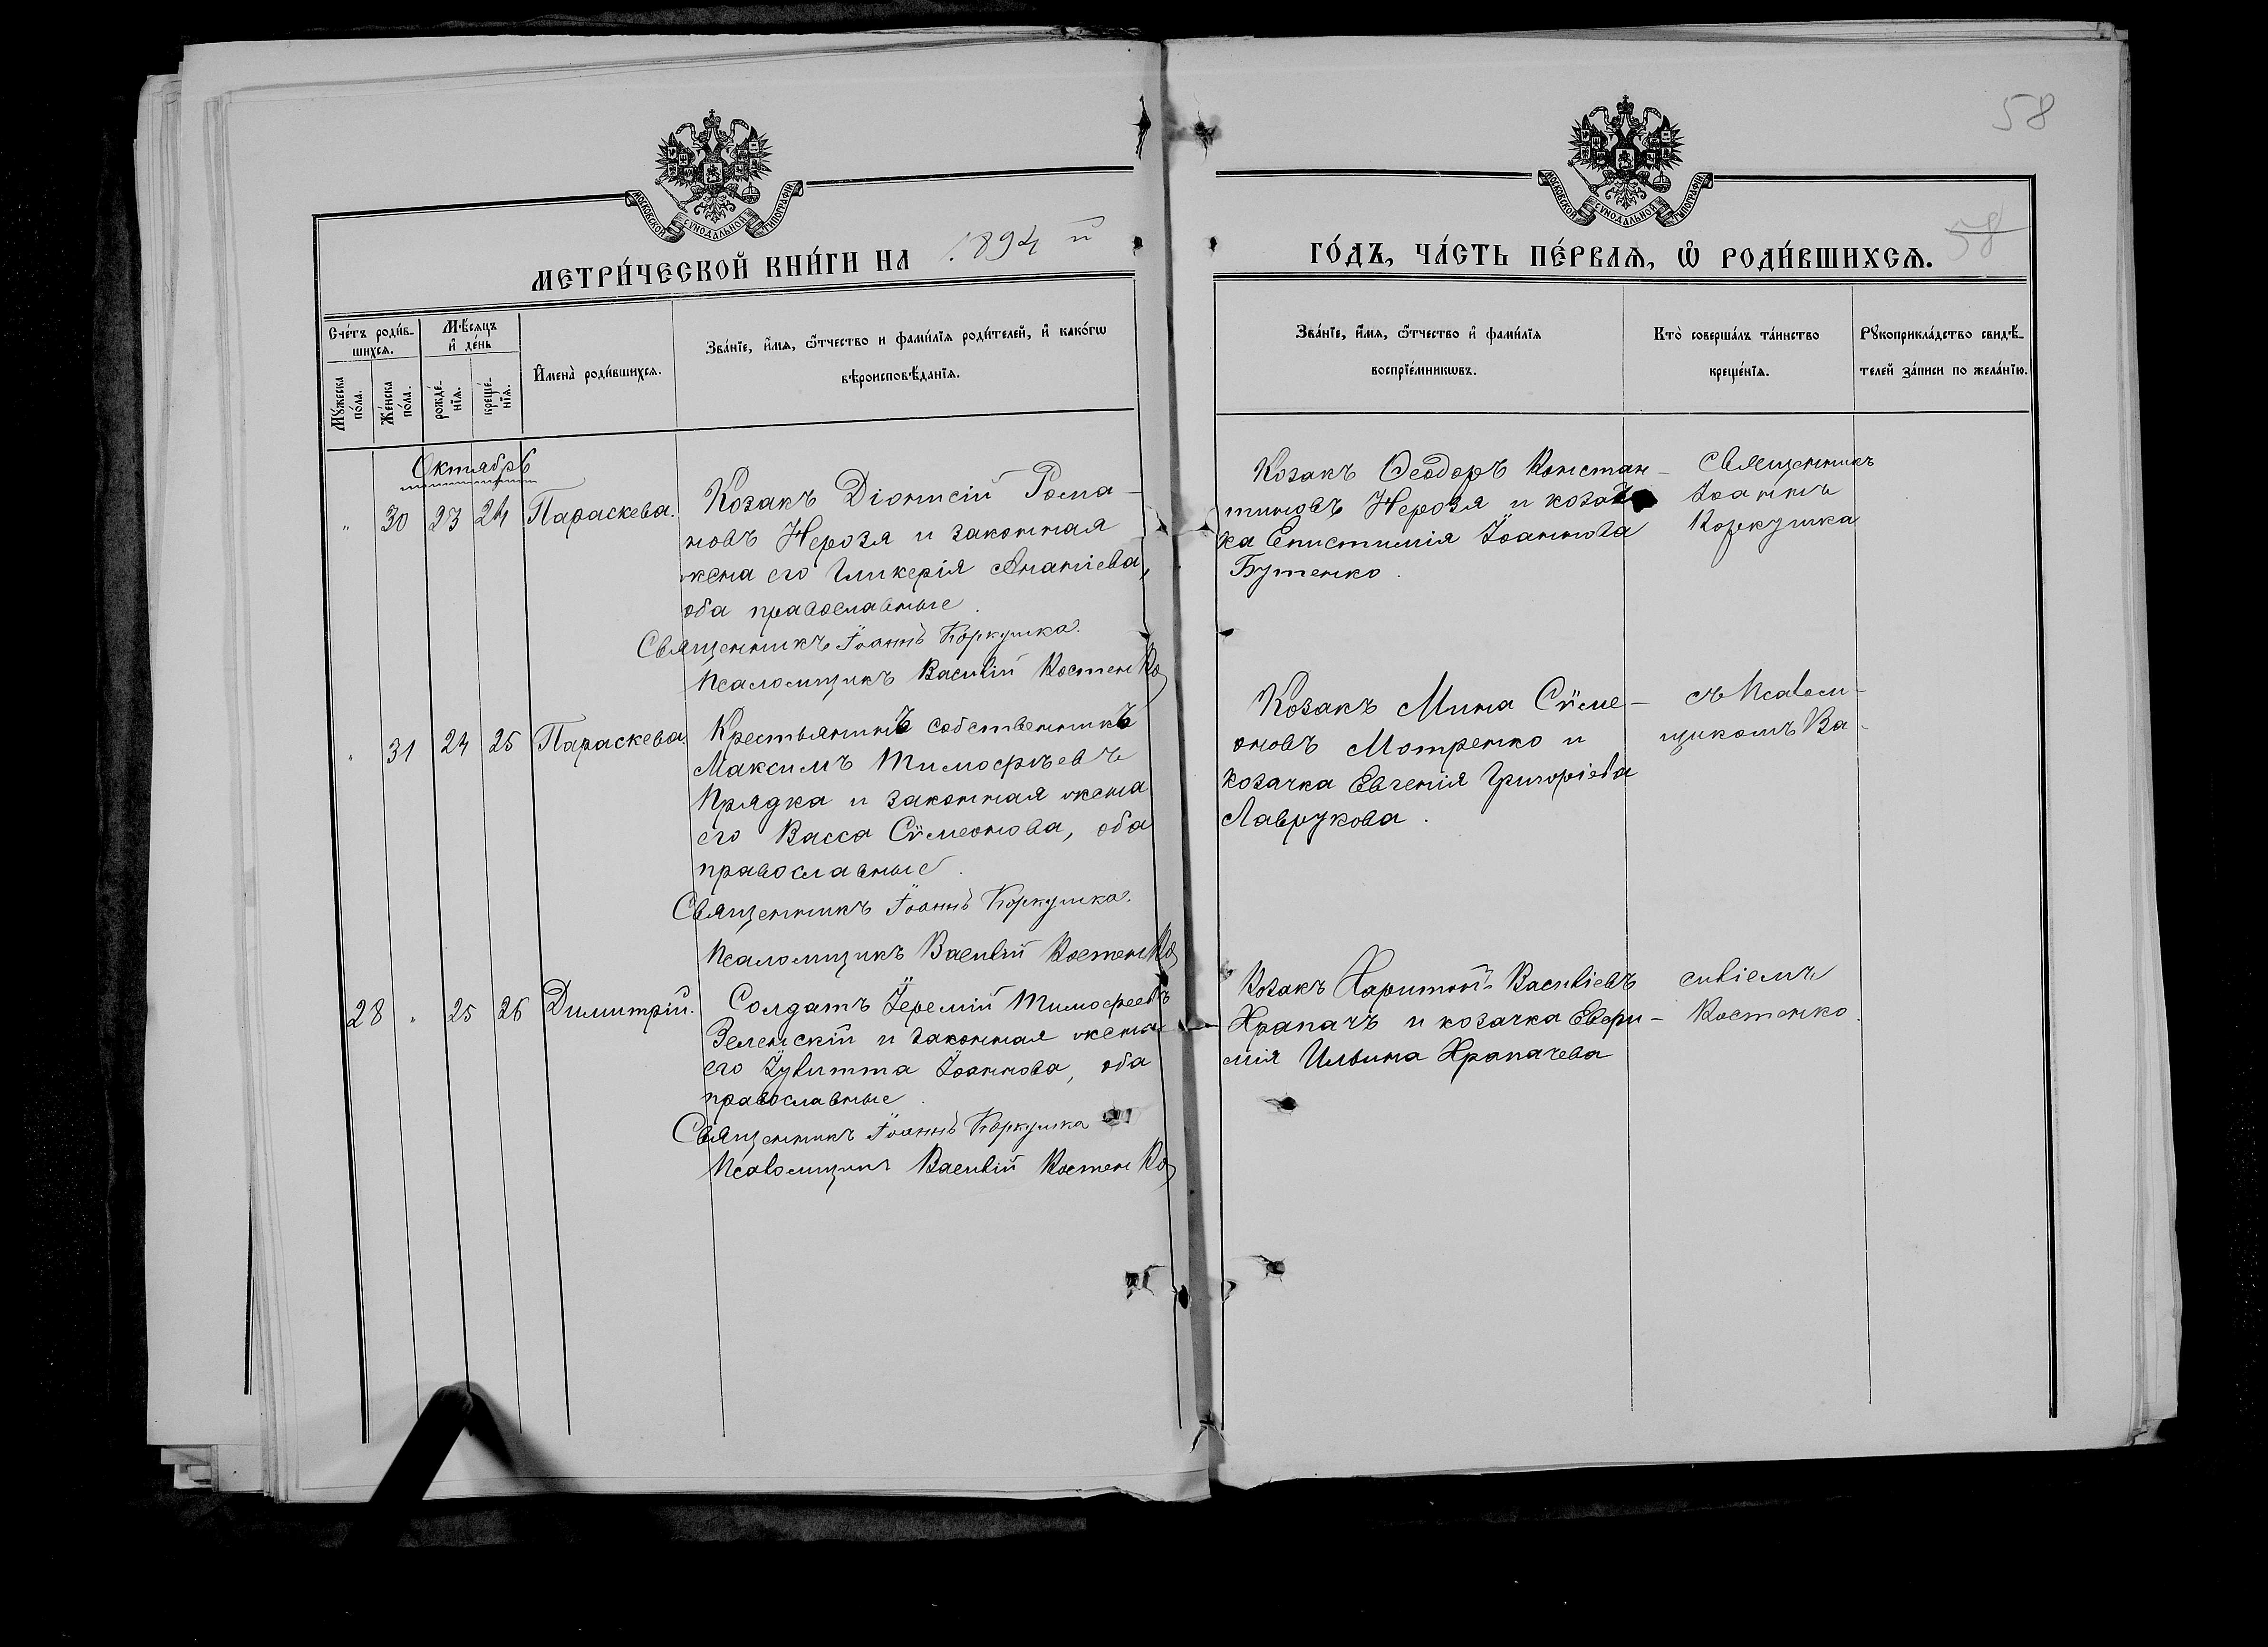 58
МОСКОВСКОЙ СѴНОДАЛЬНОЙ ТИПОГРАФІИ
МОСКОВСКОЙ СѴНОДАЛЬНОЙ ТИПОГРАФІИ
58
МЕТРИ́ЧЕСКОЙ КНИ́ГИ НА 1894 й
ГО́ДЪ, ЧА́СТЬ ПЕ́РВАѦ, Ѽ РОДИ́ВШИХСѦ.
Сче́тъ роди́в-
шихсѧ.
Мѣ́сѧцъ
и҆ де́нь
Мꙋ́жеска
по́ла.
Же́нска
по́ла.
рожде́-
нїѧ.
креще́-
нїѧ.
И҆мена̀ роди́вшихсѧ.
Зва́нїе, и҆́мѧ, ѻ҆́тчество и фами́лїѧ роди́телей, и҆ како́гѡ
вѣроисповѣ́данїѧ.
Зва́нїе, и҆́мѧ, ѻ҆́тчество и҆ фами́лїѧ
воспрїе́мникѡвъ.
Кто̀ соверша́лъ та́инство
креще́нїѧ.
Рꙋкоприкла́дство свидѣ́-
телей за́писи по жела́нїю.
Октябрь
" 30 23 24 Параскева.
Козакъ Діонисій Рома-
новъ Нерозя и законная
жена его Гликерія Ананіева,
оба православные.
Священникъ Іоаннъ Коркушка.
Псаломщикъ Василій Костенко
Козакъ Ѳеодоръ Констан-
тиновъ Нерозя и козач
ка Епистимія Іоаннова
Бутенко.
Священникъ
Іоаннъ
Коркушка
" 31 24 25 Параскева.
Крестьянинъ собственникъ
Максимъ Тимофѣевъ
Прядка и законная жена
его Васса Сѵмеонова, оба
православные.
Священникъ Іоаннъ Коркушка.
Псаломщикъ Василій Костенко
Козакъ Мина Сѵме-
оновъ Мотренко и
козачка Евгенія Григоріева
Лаврукова.
съ Псалом-
щикомъ Ва-
28 " 25 26 Димитрій.
Солдатъ Іеремій Тимофеевъ
Зеленскій и законная жена
его Іулитта Іоаннова, оба
православные.
Священникъ Іоаннъ Коркушка
Псаломщикъ Василій Костенко
Козакъ Харитонъ Василіевъ
Храпачъ и козачка Евфи-
мія Ильина Храпачева
силіемъ
Костенко.